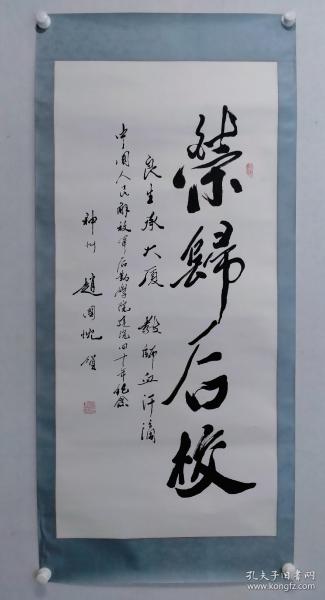 榮歸后校
良生承大厦 教師血汗滴
中国人民解放軍后勤學院建院四十年紀念
神州 趙国忱 
孔夫子旧书网
www.kongfz.com